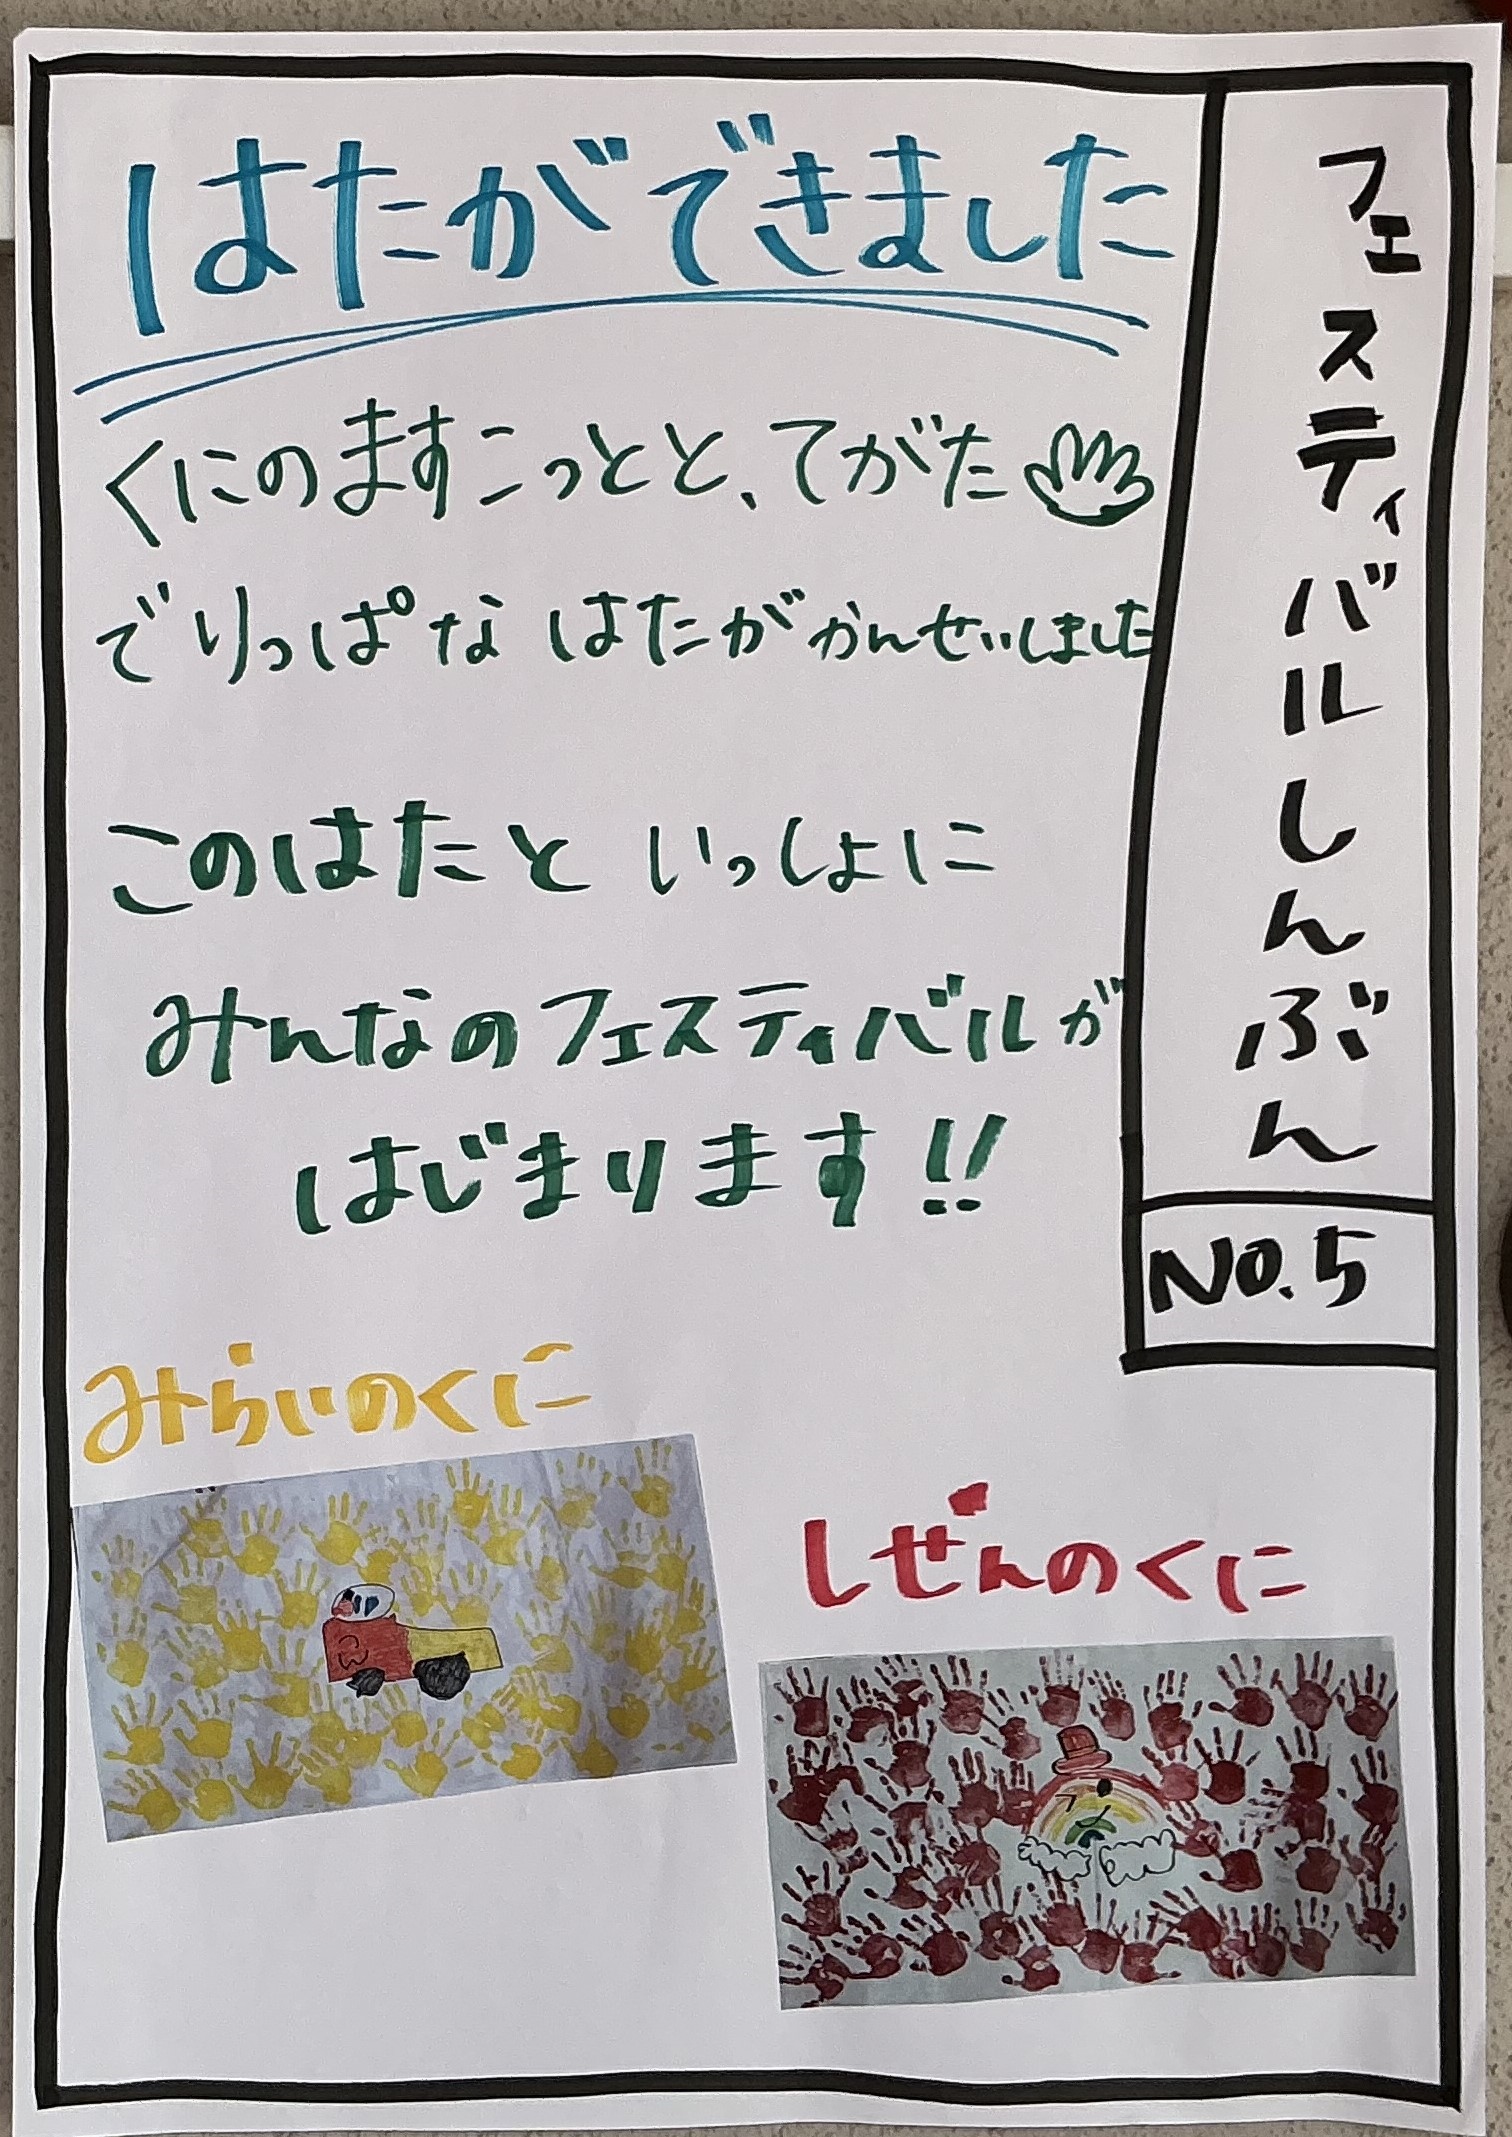 フェスティバルしんぶん
NO.5
はたができました
くにのますこっとと、てがた
でりっぱな はたがかんせいしました
このはたと いっしょに
みんなのフェスティバルが
はじまります!!
みらいのくに
しぜんのくに